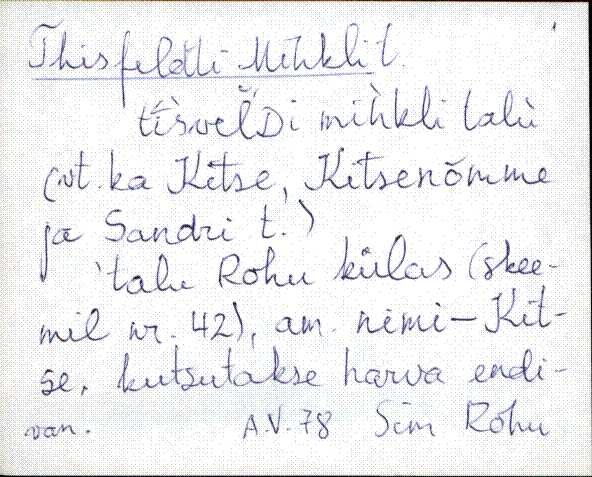 Thisfeldti-Mihkli t.
tìsveľDi mìhkli talù
(vt. ka Kitse, Kitsenõmme
ja Sandri t.)
'talu Rohu külas (skee-
mil nr. 42), am. nimi – Kit-
se, kutsutakse harva endi-
van. A.V. 78 Sim Rohu